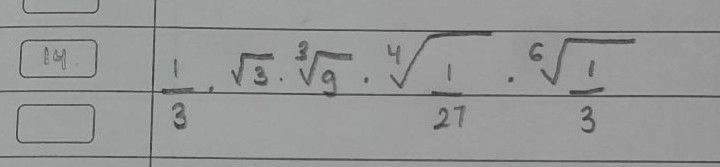 14.
1/3 . √3 . ³√9 . ⁴√(1/27) . ⁶√(1/3)